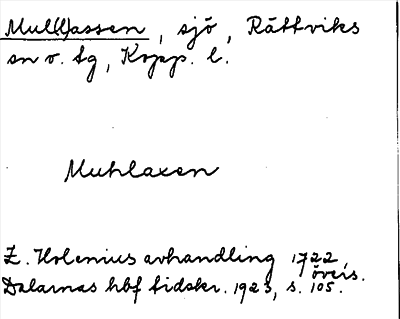 Mul(l)assen, sjö, Rättviks
sn o. tg, Kopp. l.
Muhlaxen
Z. Holenius avhandling 1722,
övers.
Dalarnas hbf tidskr. 1923, s. 105.